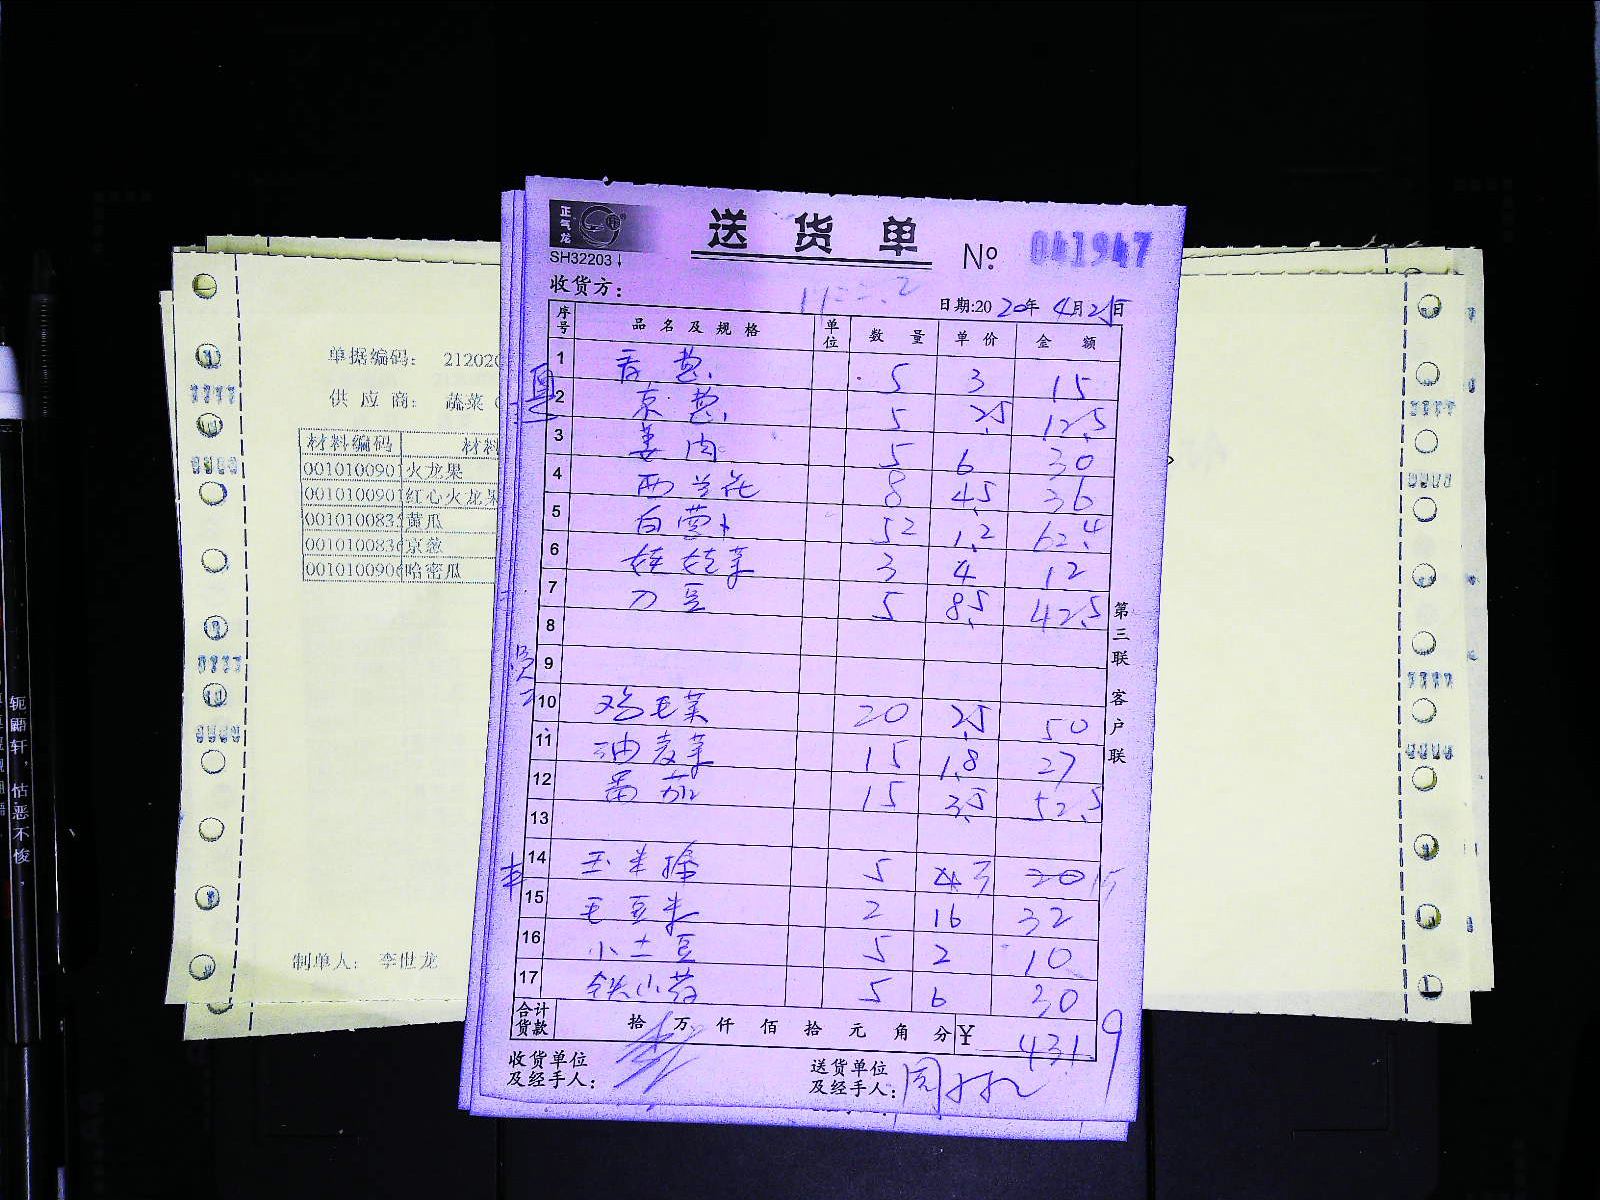 正气龙
SH32203
送货单
№ 041947
收货方:
1122.2
日期:2020年4月25日
序号 品名及规格 单位 数量 单价 金额
1 香葱 5 3 15
2 京葱 5 2.5 12.5
3 姜肉 5 6 30
4 西兰花 8 4.5 36
5 白萝卜 52 1.2 62.4
6 娃娃菜 3 4 12
7 刀豆 5 8.5 42.5
8
9
10 鸡毛菜 20 2.5 50
11 油麦菜 15 1.8 27
12 番茄 15 3.5 52.5
13
14 玉米棒 5 3 15
15 毛豆米 2 16 32
16 小土豆 5 2 10
17 铁山药 5 6 30
合计货款 拾万仟佰拾元角分 ¥ 431.9
收货单位及经手人:
送货单位及经手人: 周
第三联 客户联
单据编码: 212020
供应商: 蔬菜(
材料编码 材料
0010100901 火龙果
0010100901 红心火龙果
001010083 黄瓜
001010083 京葱
001010090 哈密瓜
制单人: 李世龙
轭鼯轩,怙恶不悛,